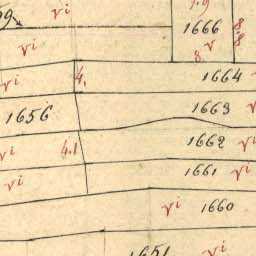 vi
1666
v
8.
vi
vi
4.
1664
1656
1663
vi
4.1
1662
vi
1661
vi
vi
vi
1660
1651
vi